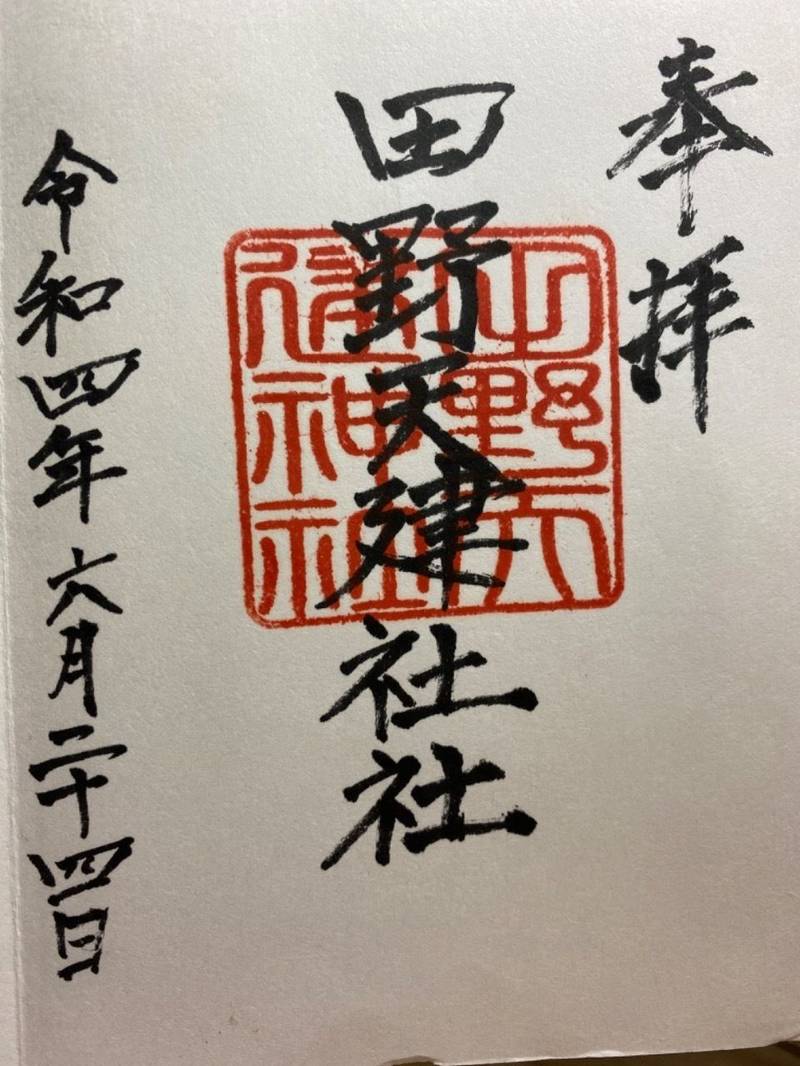 奉拝
田野天建社社
田野天
建神社
令和四年六月二十四日